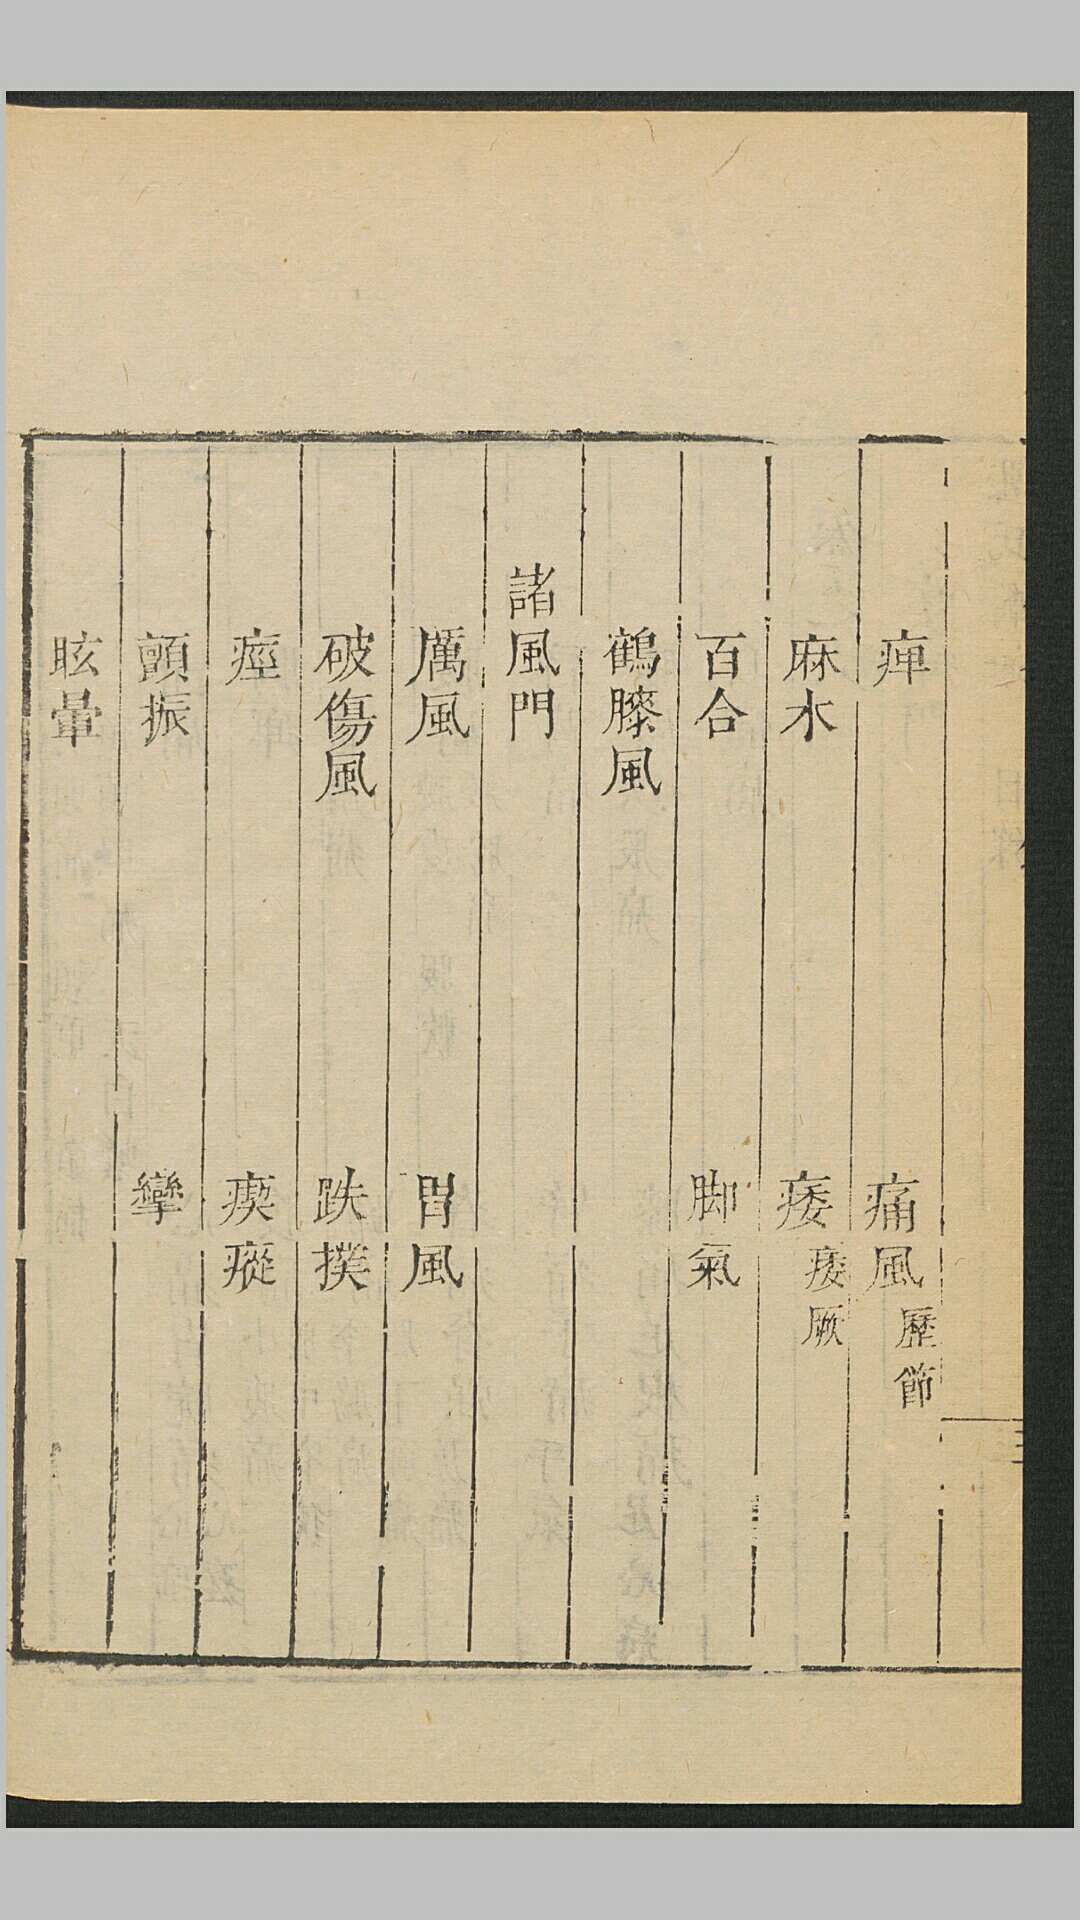 痺 痛風 歷節
麻木 痿 痿厥
百合 脚氣
鶴膝風
諸風門
厲風 胃風
破傷風 跌撲
痙 瘈瘲
顫振 攣
眩暈